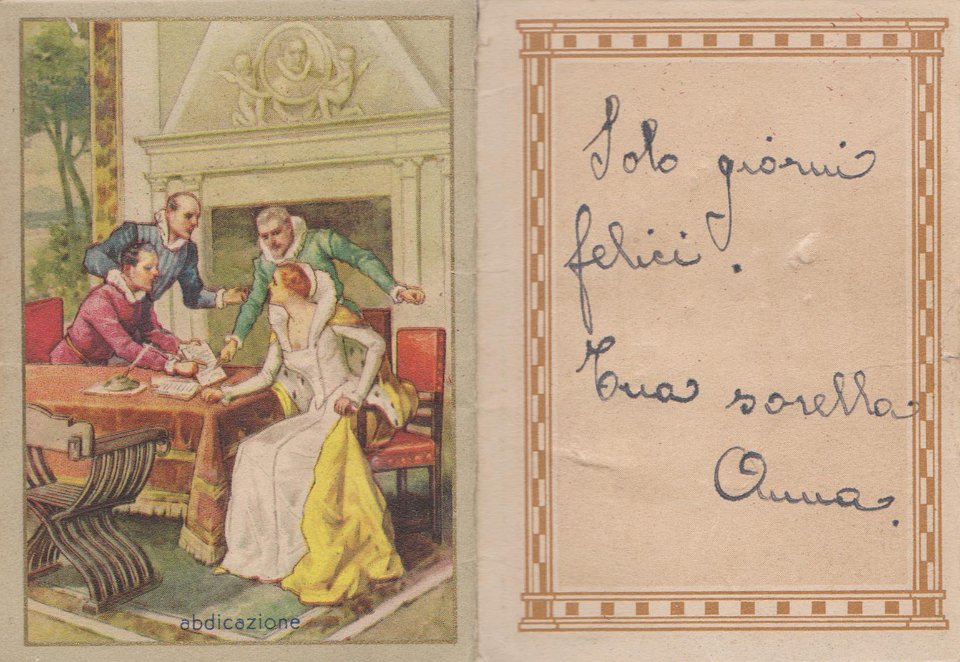 abdicazione
Solo giorni
felici.
Tua sorella
Anna.